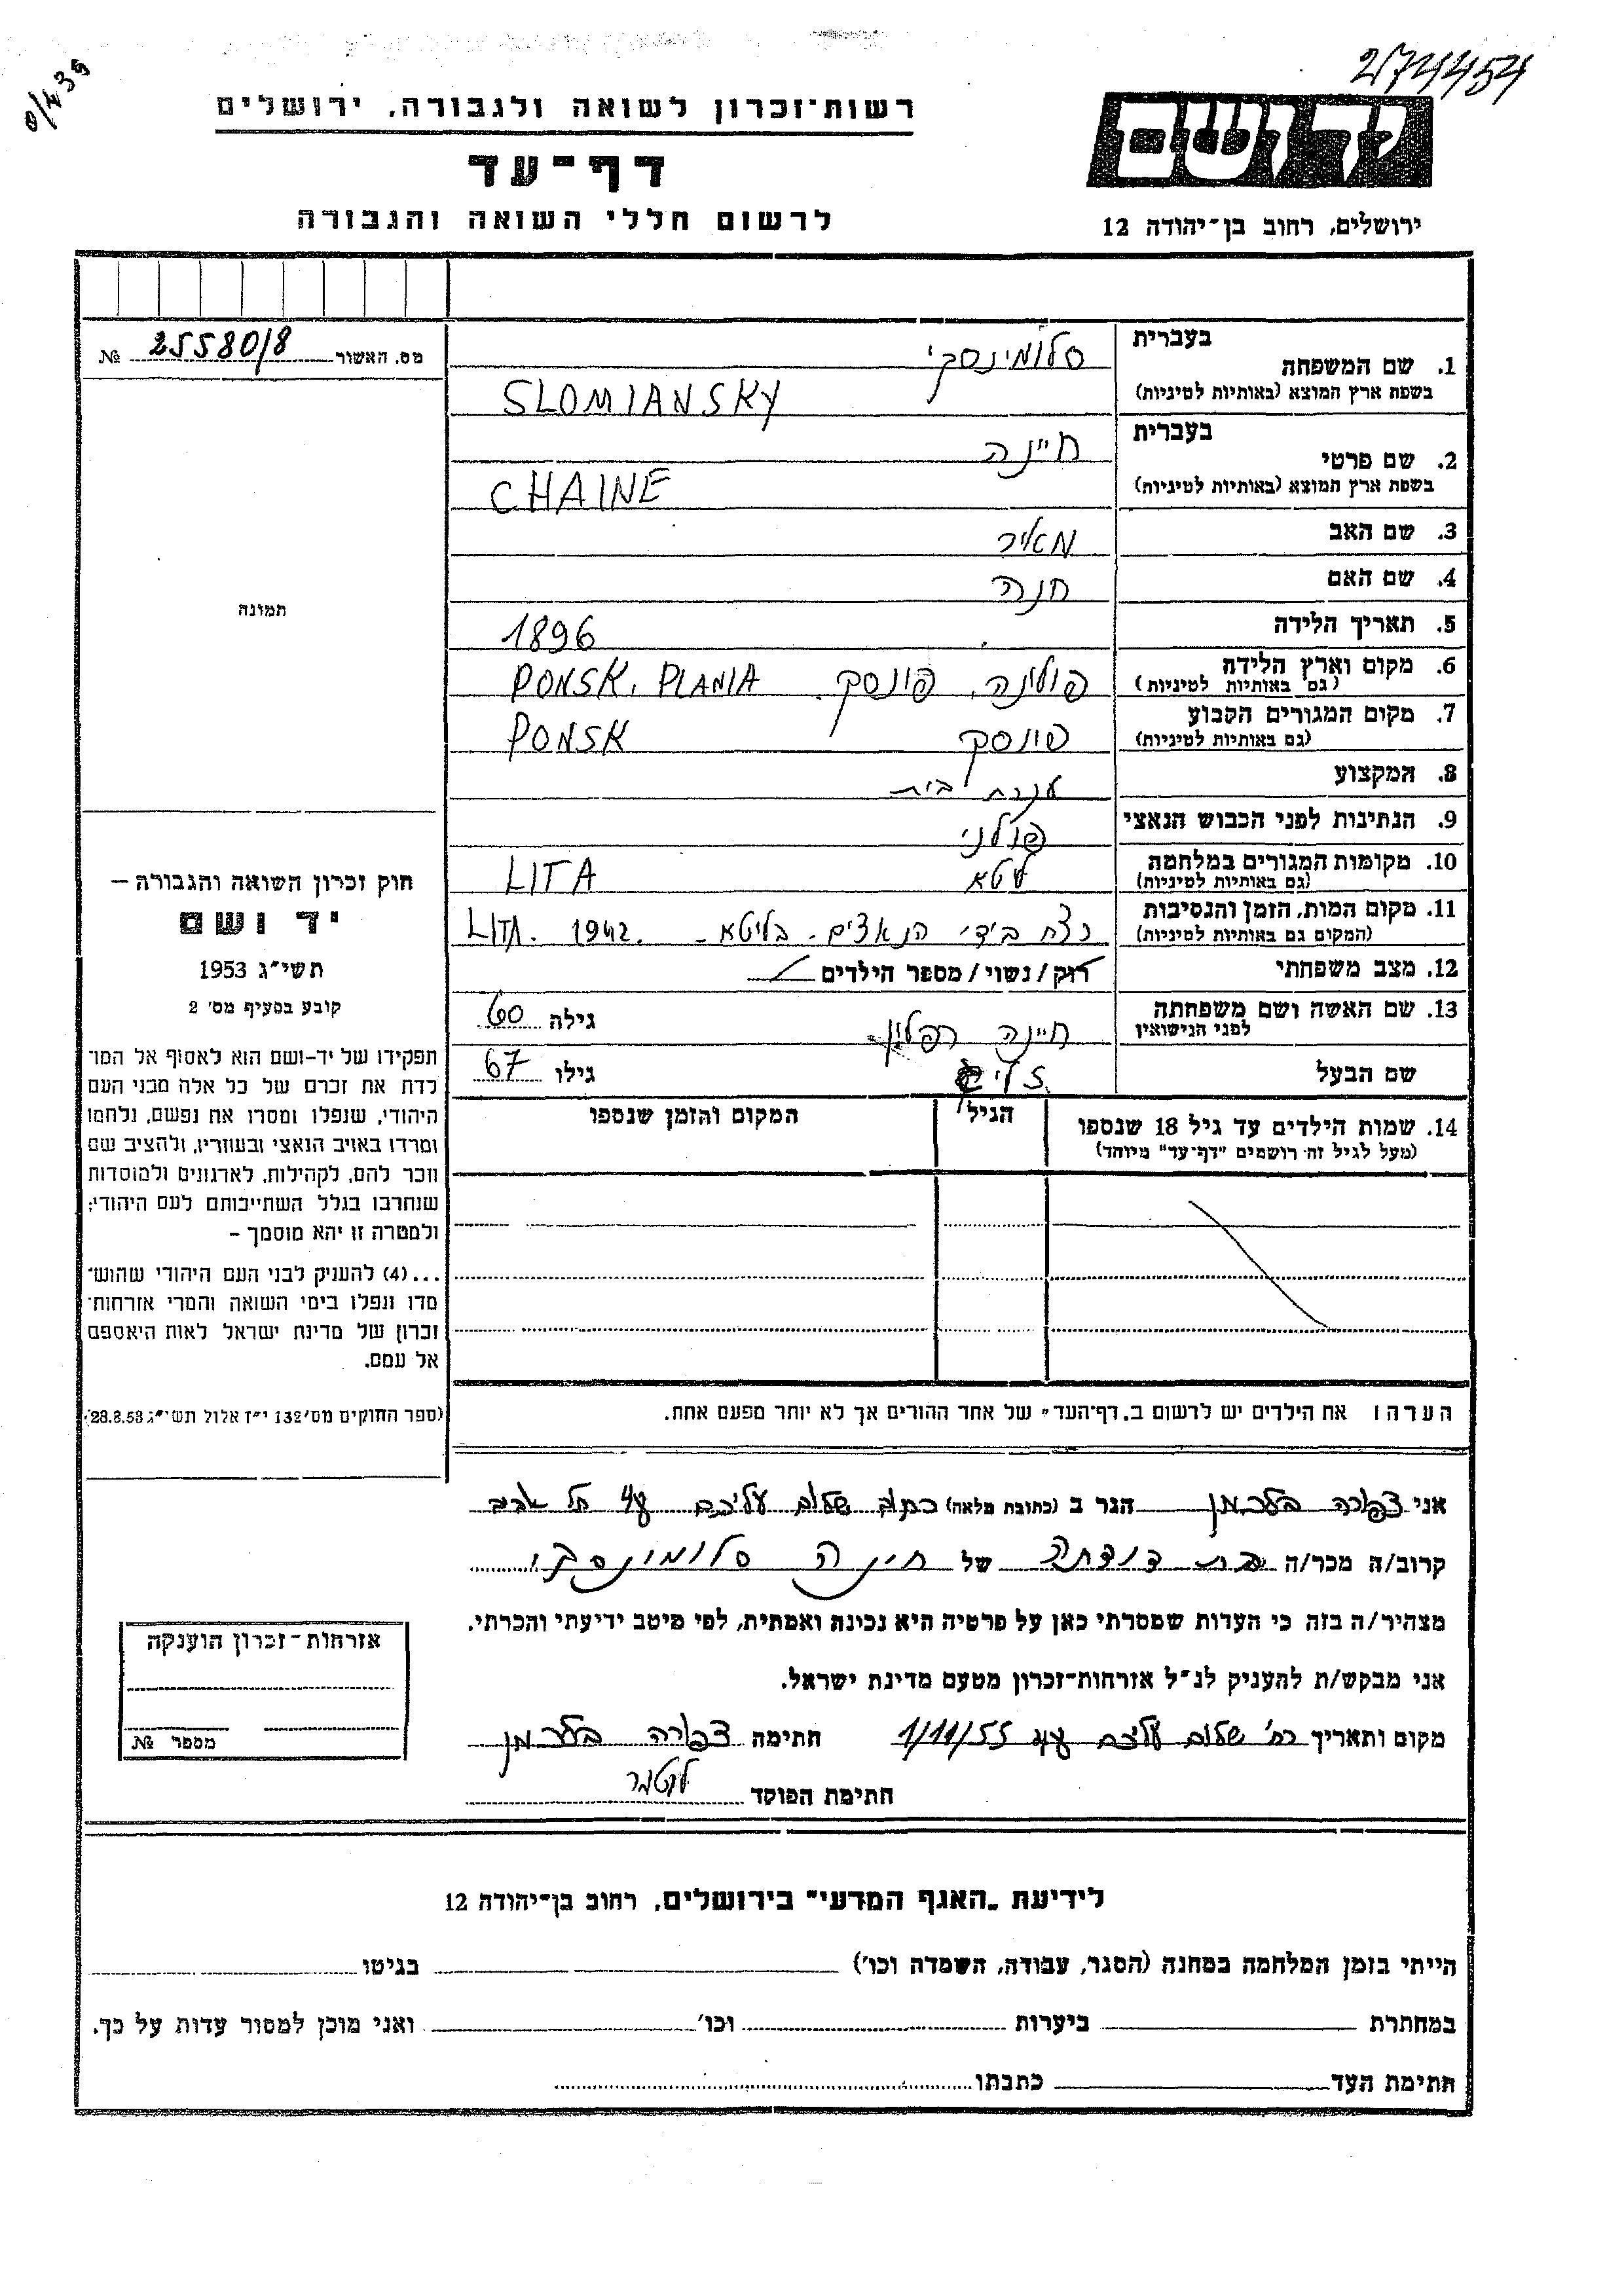 274454
8/439
רשות־זכרון לשואה ולגבורה, ירושלים
דף־עד
לרשום חללי השואה והגבורה
ידושם
ירושלים, רחוב בן־יהודה 12
מס. האשור 25580/8 №
תמונה
חוק זכרון השואה והגבורה –
יד ושם
תשי״ג 1953
קובע בסעיף מס׳ 2
תפקידו של יד-ושם הוא לאסוף אל המו־
לדת את זכרם של כל אלה מבני העם
היהודי, שנפלו ומסרו את נפשם, נלחמו
ומרדו באויב הנאצי ובעוזריו, ולהציב שם
וזכר להם, לקהילות, לארגונים ולמוסדות
שנחרבו בגלל השתייכותם לעם היהודי;
ולמטרה זו יהא מוסמך –
...(4) להעניק לבני העם היהודי שהוש־
מדו ונפלו בימי השואה והמרי אזרחות־
זכרון של מדינת ישראל לאות היאספם
אל עמם.
(ספר החוקים מס׳ 132 י״ז אלול תשי״ג 28.8.53)
בעברית
1. שם המשפחה סלומינסקי
בשפת ארץ המוצא (באותיות לטיניות) SLOMIANSKY
בעברית
2. שם פרטי חיינה
בשפת ארץ המוצא (באותיות לטיניות) CHAINE
3. שם האב מאיר
4. שם האם חנה
5. תאריך הלידה 1896
6. מקום וארץ הלידה פולינה, פונסק. PONSK, PLANIA
(גם באותיות לטיניות)
7. מקום המגורים הקבוע פונסק PONSK
(גם באותיות לטיניות)
8. המקצוע עקרת בית
9. הנתינות לפני הכבוש הנאצי פולני
10. מקומות המגורים במלחמה ליטא LITA
(גם באותיות לטיניות)
11. מקום המות, הזמן והנסיבות נצח בידי הנאצים. בליטא. 1942. LITA
(המקום גם באותיות לטיניות)
12. מצב משפחתי רוק/נשוי/מספר הילדים
13. שם האשה ושם משפחתה חיינה רפלין גילה 60
לפני הנישואין
שם הבעל גילו 67
14. שמות הילדים עד גיל 18 שנספו הגיל המקום והזמן שנספו
(מעל לגיל זה רושמים ״דף־עד״ מיוחד)
הערה: את הילדים יש לרשום ב„דף־העד״ של אחד ההורים אך לא יותר מפעם אחת.
אני צפורה בלכמן הגר ב (כתובת מלאה) שלום עליכם 48 תל אביב
קרוב/ה מכר/ה בת דודתה של חינה סלומינסקי
מצהיר/ה בזה כי העדות שמסרתי כאן על פרטיה היא נכונה ואמתית, לפי מיטב ידיעתי והכרתי.
אני מבקש/ת להעניק לנ״ל אזרחות־זכרון מטעם מדינת ישראל.
מקום ותאריך רח׳ שלום עליכם 48 1/11/55 חתימה צפורה בלכמן
חתימת הפוקד
אזרחות־זכרון הוענקה
מספר №
לידיעת „האגף המדעי״ בירושלים, רחוב בן־יהודה 12
הייתי בזמן המלחמה במחנה (הסגר, עבודה, השמדה וכו׳) בגיטו
במחתרת ביערות וכו׳ ואני מוכן למסור עדות על כך.
חתימת העד כתבתו